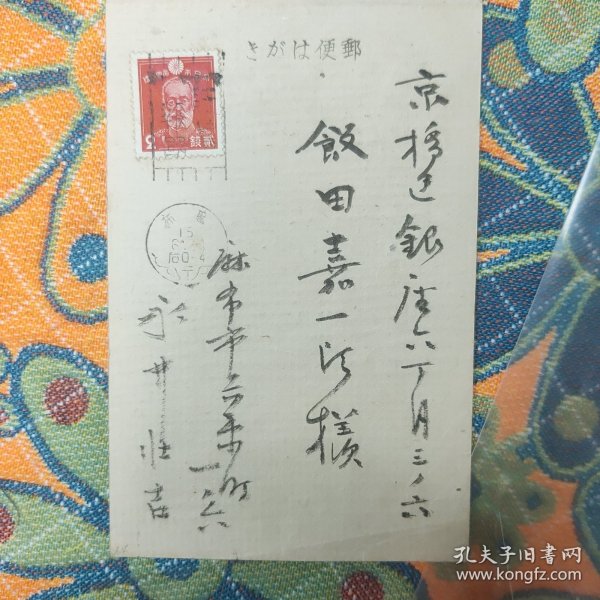 郵便はがき
京橋區銀座六丁目三ノ六
飯田嘉一郎様
麻布市兵衛町
一ノ六
永井壮吉
貳錢
孔夫子旧书网
www.kongfz.com